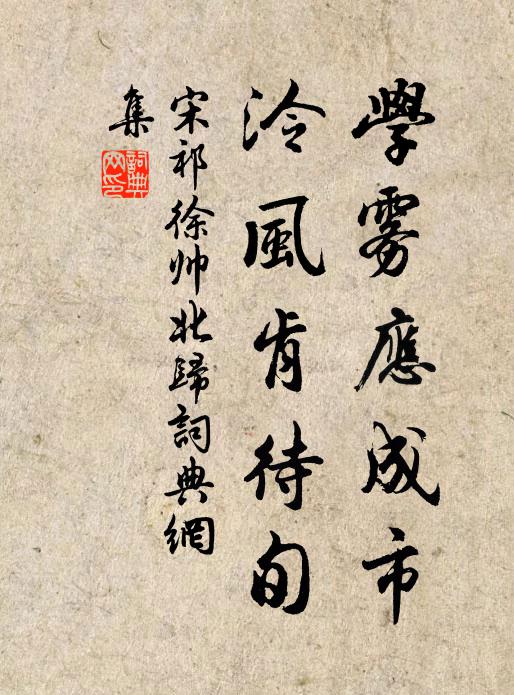 學雾應成市
泠風肯待旬
宋祁徐帅北歸詞典網
集
詞典網印